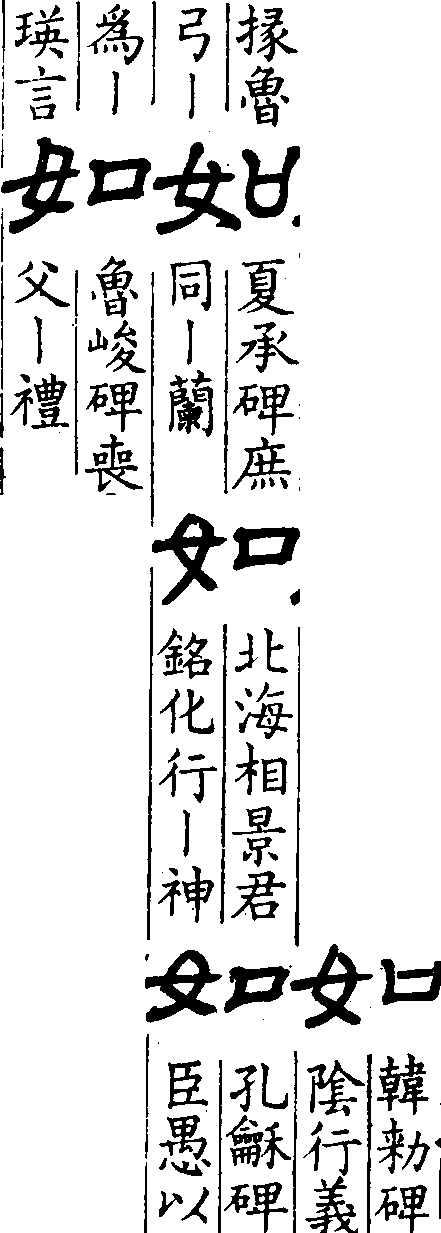 如
韓勑碑
陰行義
掾魯
弓丨
如
夏承碑庶
同丨蘭
如
北海相景君
銘化行丨神
如
孔龢碑
臣愚以
爲丨
瑛言
如
魯峻碑喪
父丨禮